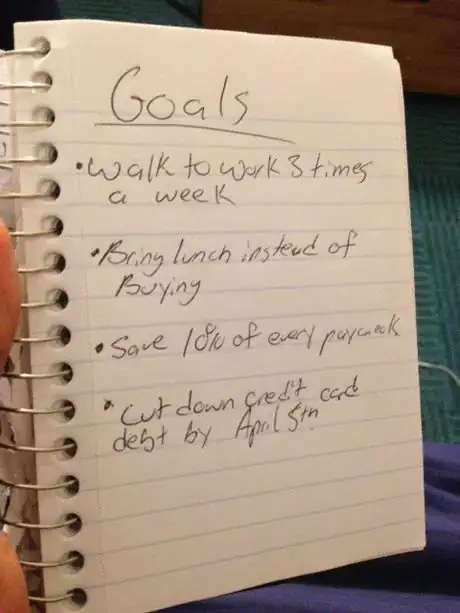 Goals
• Walk to work 3 times
a week
• Bring lunch instead of
Buying
• Save 10% of every paycheck
• Cut down credit card
debt by April 5th